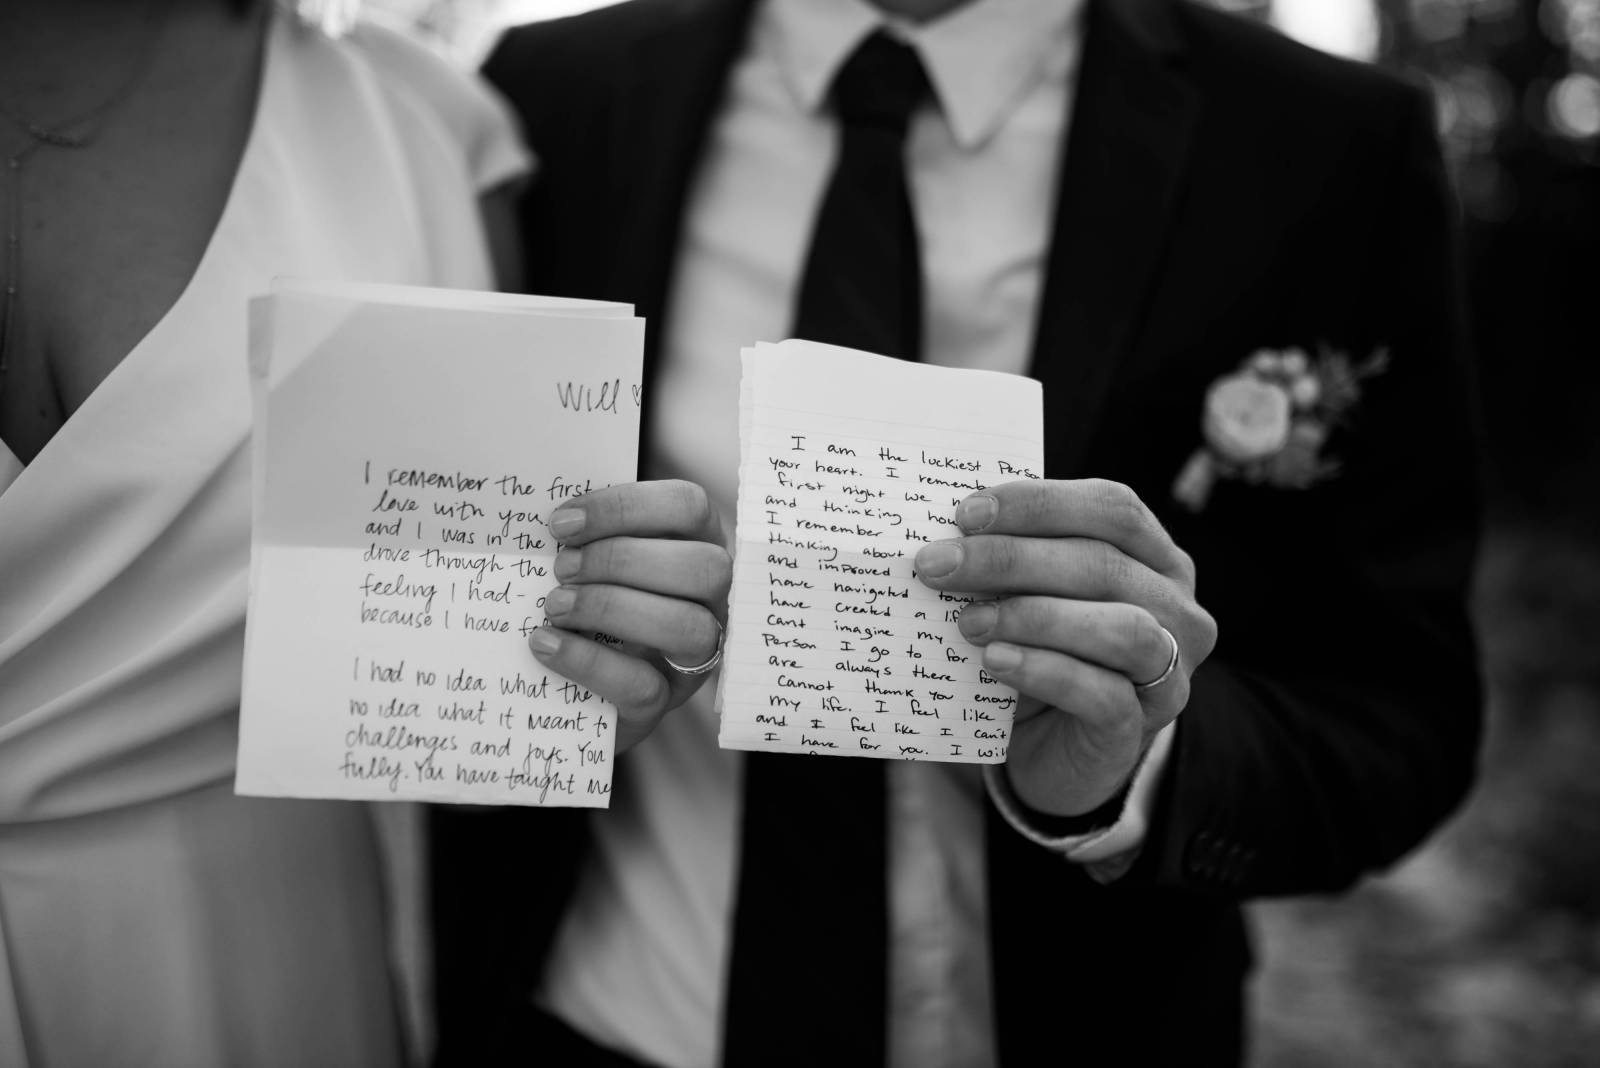 Will ♡
I remember the first
love with you.
and I was in the
drove through the
feeling I had -
because I have
I had no idea what the
no idea what it meant to
challenges and joys. You
fully. You have taught me
I am the luckiest Person
your heart. I remember
first night we
and thinking how
I remember the
thinking about
and improved
have navigated
have created a
cant imagine my
Person I go to for
are always there for
Cannot thank you enough
my life. I feel like
and I feel like I can't
I have for you. I will